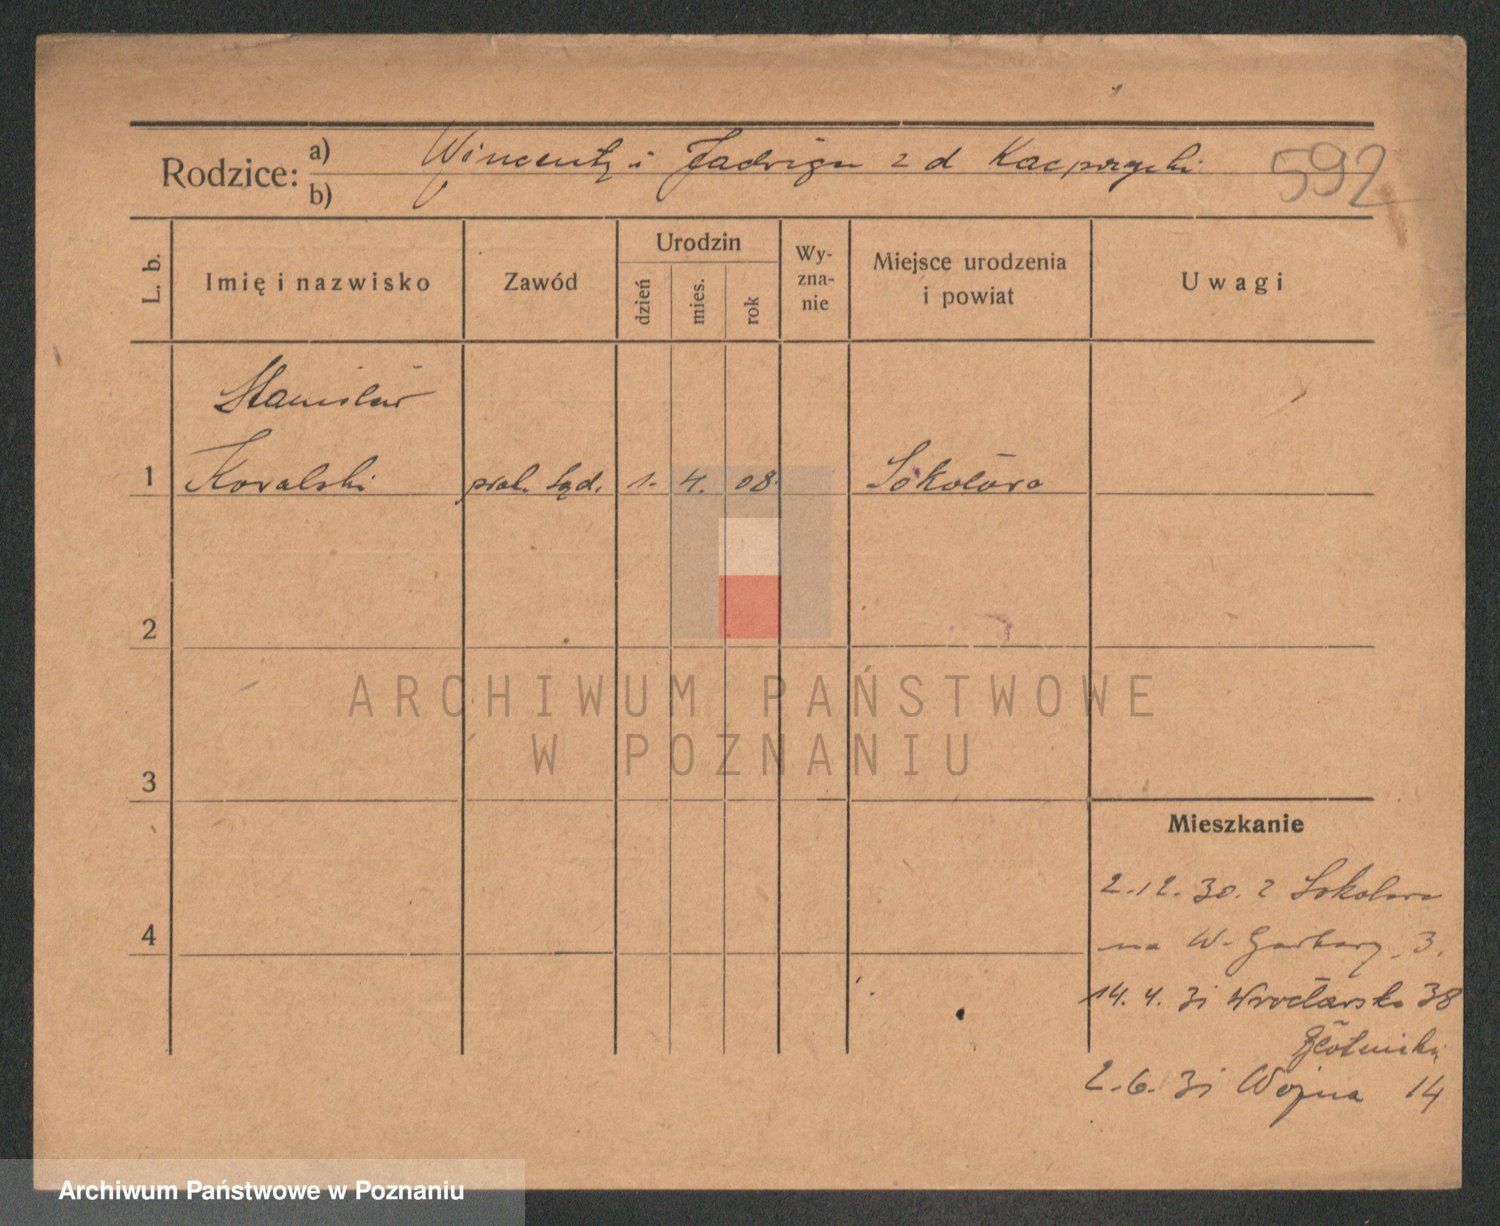 Rodzice: a) Wincenty i Jadwiga z d Kacprzycki
b)
592
L. b.
Imię i nazwisko
Zawód
Urodzin
dzień
mies.
rok
Wy-
zna-
nie
Miejsce urodzenia
i powiat
Uwagi
Stanisław
1 Kowalski prak. sąd. 1. 4. 08. Sokołowo
2
3
4
Mieszkanie
2.12.30. z Sokołowo
na W. Garbary 3.
14. 4. 31 Wrocławska 38
2. 6. 31 Wojna 14
ARCHIWUM PAŃSTWOWE
W POZNANIU
Archiwum Państwowe w Poznaniu